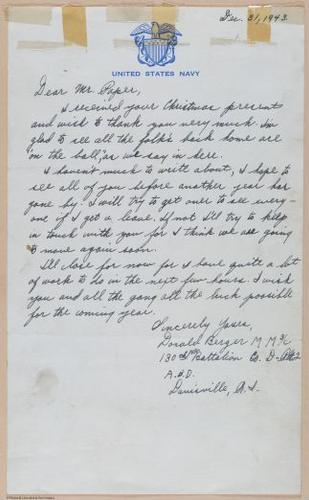 Dec. 31, 1943.
UNITED STATES NAVY
Dear Mr. Pyper,
I received your Christmas presents
and wish to thank you very much. I'm
glad to see all the folk's back home are
"on the ball," as we say in here.
I haven't much to write about, I hope to
see all of you before another year has
gone by. I will try to get over to see every-
one if I get a leave. If not I'll try to keep
in touch with you for I think we are going
to move again soon.
I'll close for now for I have quite a bit
of work to do in the next few hours. I wish
you and all the gang all the luck possible
for the coming year.
Sincerely Yours,
Donald Berger M.M.
130th Battalion Co. D-
A.B.D.
Davisville, R.I.